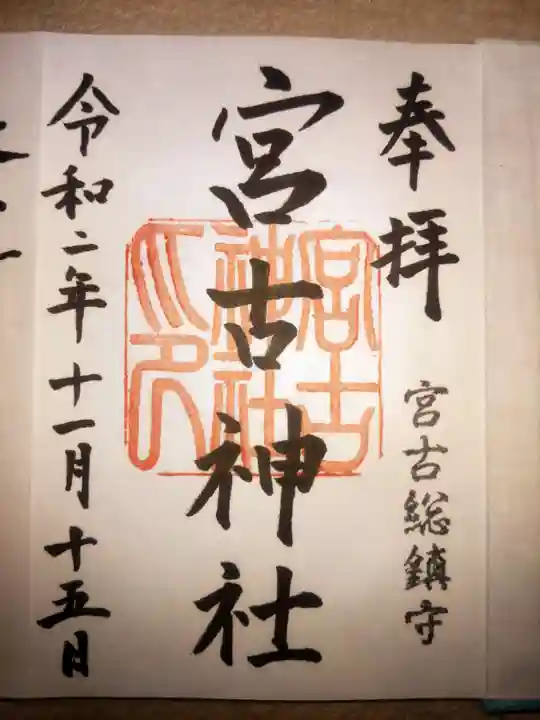 奉拝
宮古総鎮守
宮古神社
宮古
神社
之印
令和二年十一月十五日